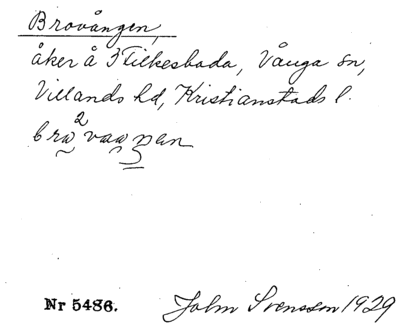 Brovången,
åker å Filkesboda, Vånga sn,
Villands hd, Kristianstads l.
Nr 5486. John Svensson 1929